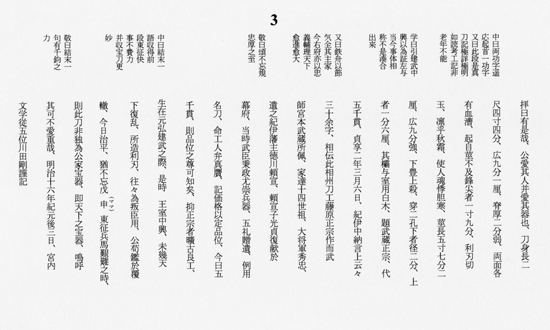 3
中曰両功字遥
応起首一功字
又曰此段是真
刀記極詳極明
如読考工記非
老年不能
学曰引建武中
興以為証左与
当今事体相
称不是湊合
出来
又曰鉄舟以節
気全其主家
今右府亦以忠
義輔理天下
愈進愈大
敬曰頌不忘規
忠厚之至
中曰結末一
語収得前
段東征快
事不費力
并収宝刀更
妙
敬曰結末一
句有千鈞之
力
拝曰有是哉、公愛其人并愛其器也、刀身長二
尺四寸四分、広九分一厘、脊厚二分弱、両面各
有血漕、起自莖不及鋒尖者一寸九分、利刃切
玉、凛乎秋霜、使人魂悸胆寒、莖長五寸七分二
厘、広九分強、下豊上殺、穿二孔下者径二分、上
者一分六厘、其欛与室用白木、題武蔵正宗、代
五千貫、貞享二年三月六日、紀伊中納言上云々
三十余字、相伝此相州刀工藤原正宗作而武
師宮本武蔵所佩、家達十四世祖、大将軍秀忠、
遺之紀伊藩主徳川頼宣、頼宣子光貞復献於
幕府、当時武臣秉政尤崇兵器、五礼贈遺、例用
名刀、命工人弁真贋、記価格以定品位、今曰五
千貫、則品位之尊可知矣、抑正宗者曠古良工、
生在元弘建武之際、是時 王室中興、未幾天
下復乱、所造利刃、往々為叛臣用、公苟鑑於覆
轍、今日治平、猶不忘戊(ママ)申東征兵馬艱難之時、
則此刀非独為公家宝器、即天下之宝器、嗚呼
其可不愛重哉、明治十六年紀元後三日、宮内
文学従五位川田剛謹記